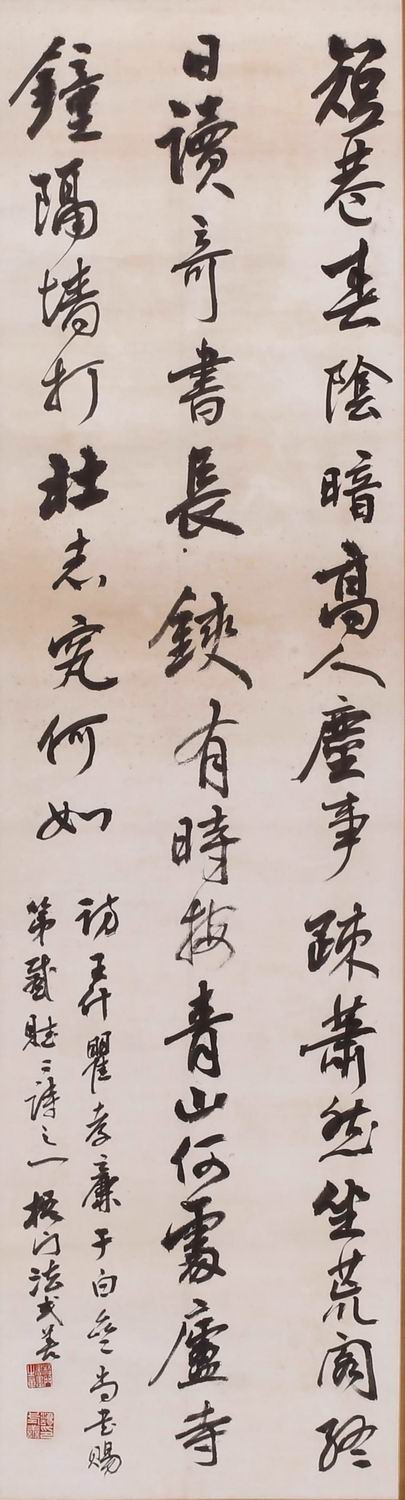 短巷春陰暗高人塵事疎蕭然坐荒閣終
日讀奇書長鋏有時按青山何處廬寺
鐘隔墻打壯志究何如
訪王仲瞿孝廉于白尚書賜
第感賦二詩之一 梧門法式善